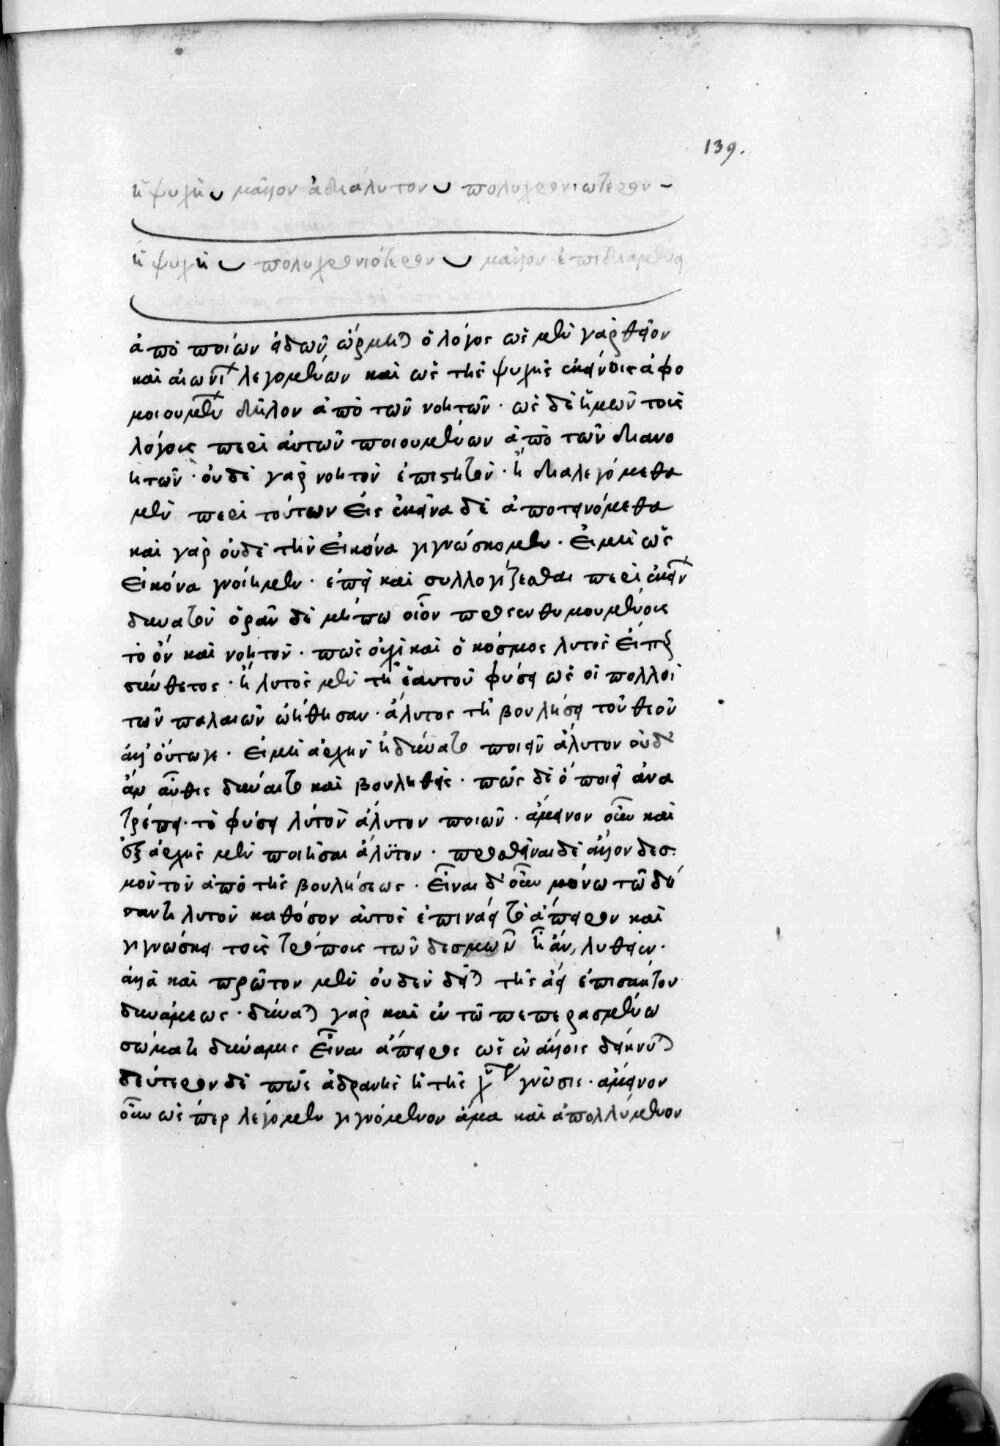 139.
ἡ ψυχὴ μᾶλλον ἀδιάλυτον πολυχρονιώτερον
ἡ ψυχὴ πολυχρονιότερον μᾶλλον ἐπιδιαμένει
ἀπὸ ποίων εἰδῶν ὥρμηται ὁ λόγος ὡς μὲν γὰρ θείον
καὶ αἰωνί λεγομένων καὶ ὡς τῆς ψυχῆς ἐκείνοις ἀφο
μοιουμέν δῆλον ἀπὸ τῶν νοητῶν· ὡς δὲ ἡμῶν τοῖς
λόγοις περὶ αὐτῶν ποιουμένων ἀπὸ τῶν διανο
ητῶν· οὐδὲ γὰρ νοητὸν ἐπιστητόν· ἢ διαλεγόμεθα
μὲν περὶ τούτων εἰς ἐκεῖνα δὲ ἀποτεινόμεθα
καὶ γὰρ οὐδὲ τὴν εἰκόνα γιγνώσκομεν· εἰ μὴ ὡς
εἰκόνα γνοίημεν· ἐπεὶ καὶ συλλογίζεσθαι περὶ ἐκείν
δυνατὸν ὁρᾶν δὲ μήπω οἷον προσενθυμουμένοις
τὸ ὂν καὶ νοητόν· πῶς οὐχὶ καὶ ὁ κόσμος λυτὸς εἴπερ
σύνθετος· ἢ λυτὸς μὲν τῇ ἑαυτοῦ φύσει ὡς οἱ πολλοὶ
τῶν παλαιῶν ᾠήθησαν· ἄλυτος τῇ βουλήσει τοῦ θεοῦ
ἀλλ' οὕτωγε· εἰ μὴ ἀρχὴν ἠδύνατο ποιεῖν ἄλυτον οὐδ'
ἂν αὖθις δύναιτο καὶ βουληθείς· πῶς δὲ ὃ ποιεῖ ἀνα
τρέπει· τὸ φύσει λυτὸν ἄλυτον ποιῶν· ἄμεινον οὖν καὶ
ἐξ ἀρχῆς μὲν ποιῆσαι ἄλυτον· προσθεῖναι δὲ ἄλλον δεσ
μὸν τὸν ἀπὸ τῆς βουλήσεως· εἶναι δ' οὖν μόνω τῶ δή
σαντι λυτὸν καθόσον αὐτὸς ἐπινάει τὸ ἄπειρον καὶ
γιγνώσκει τοὺς τρόποις τῶν δεσμῶν ἧ ἂν, λυθεῖεν·
ἀλλὰ καὶ πρῶτον μὲν οὐδὲν δεῖται τῆς ἀεὶ ἐπισκήτου
δυνάμεως· δύναται γὰρ καὶ ἐν τῶ πεπερασμένω
σώματι δύναμις εἶναι ἄπειρος ὡς ἐν ἄλλοις δείκνυται
δεύτερον δὲ πῶς ἀδρανὴς ἡ τῆς γνῶσις· ἄμεινον
οὖν ὥσπερ λέγομεν γιγνόμενον ἅμα καὶ ἀπολλύμενον